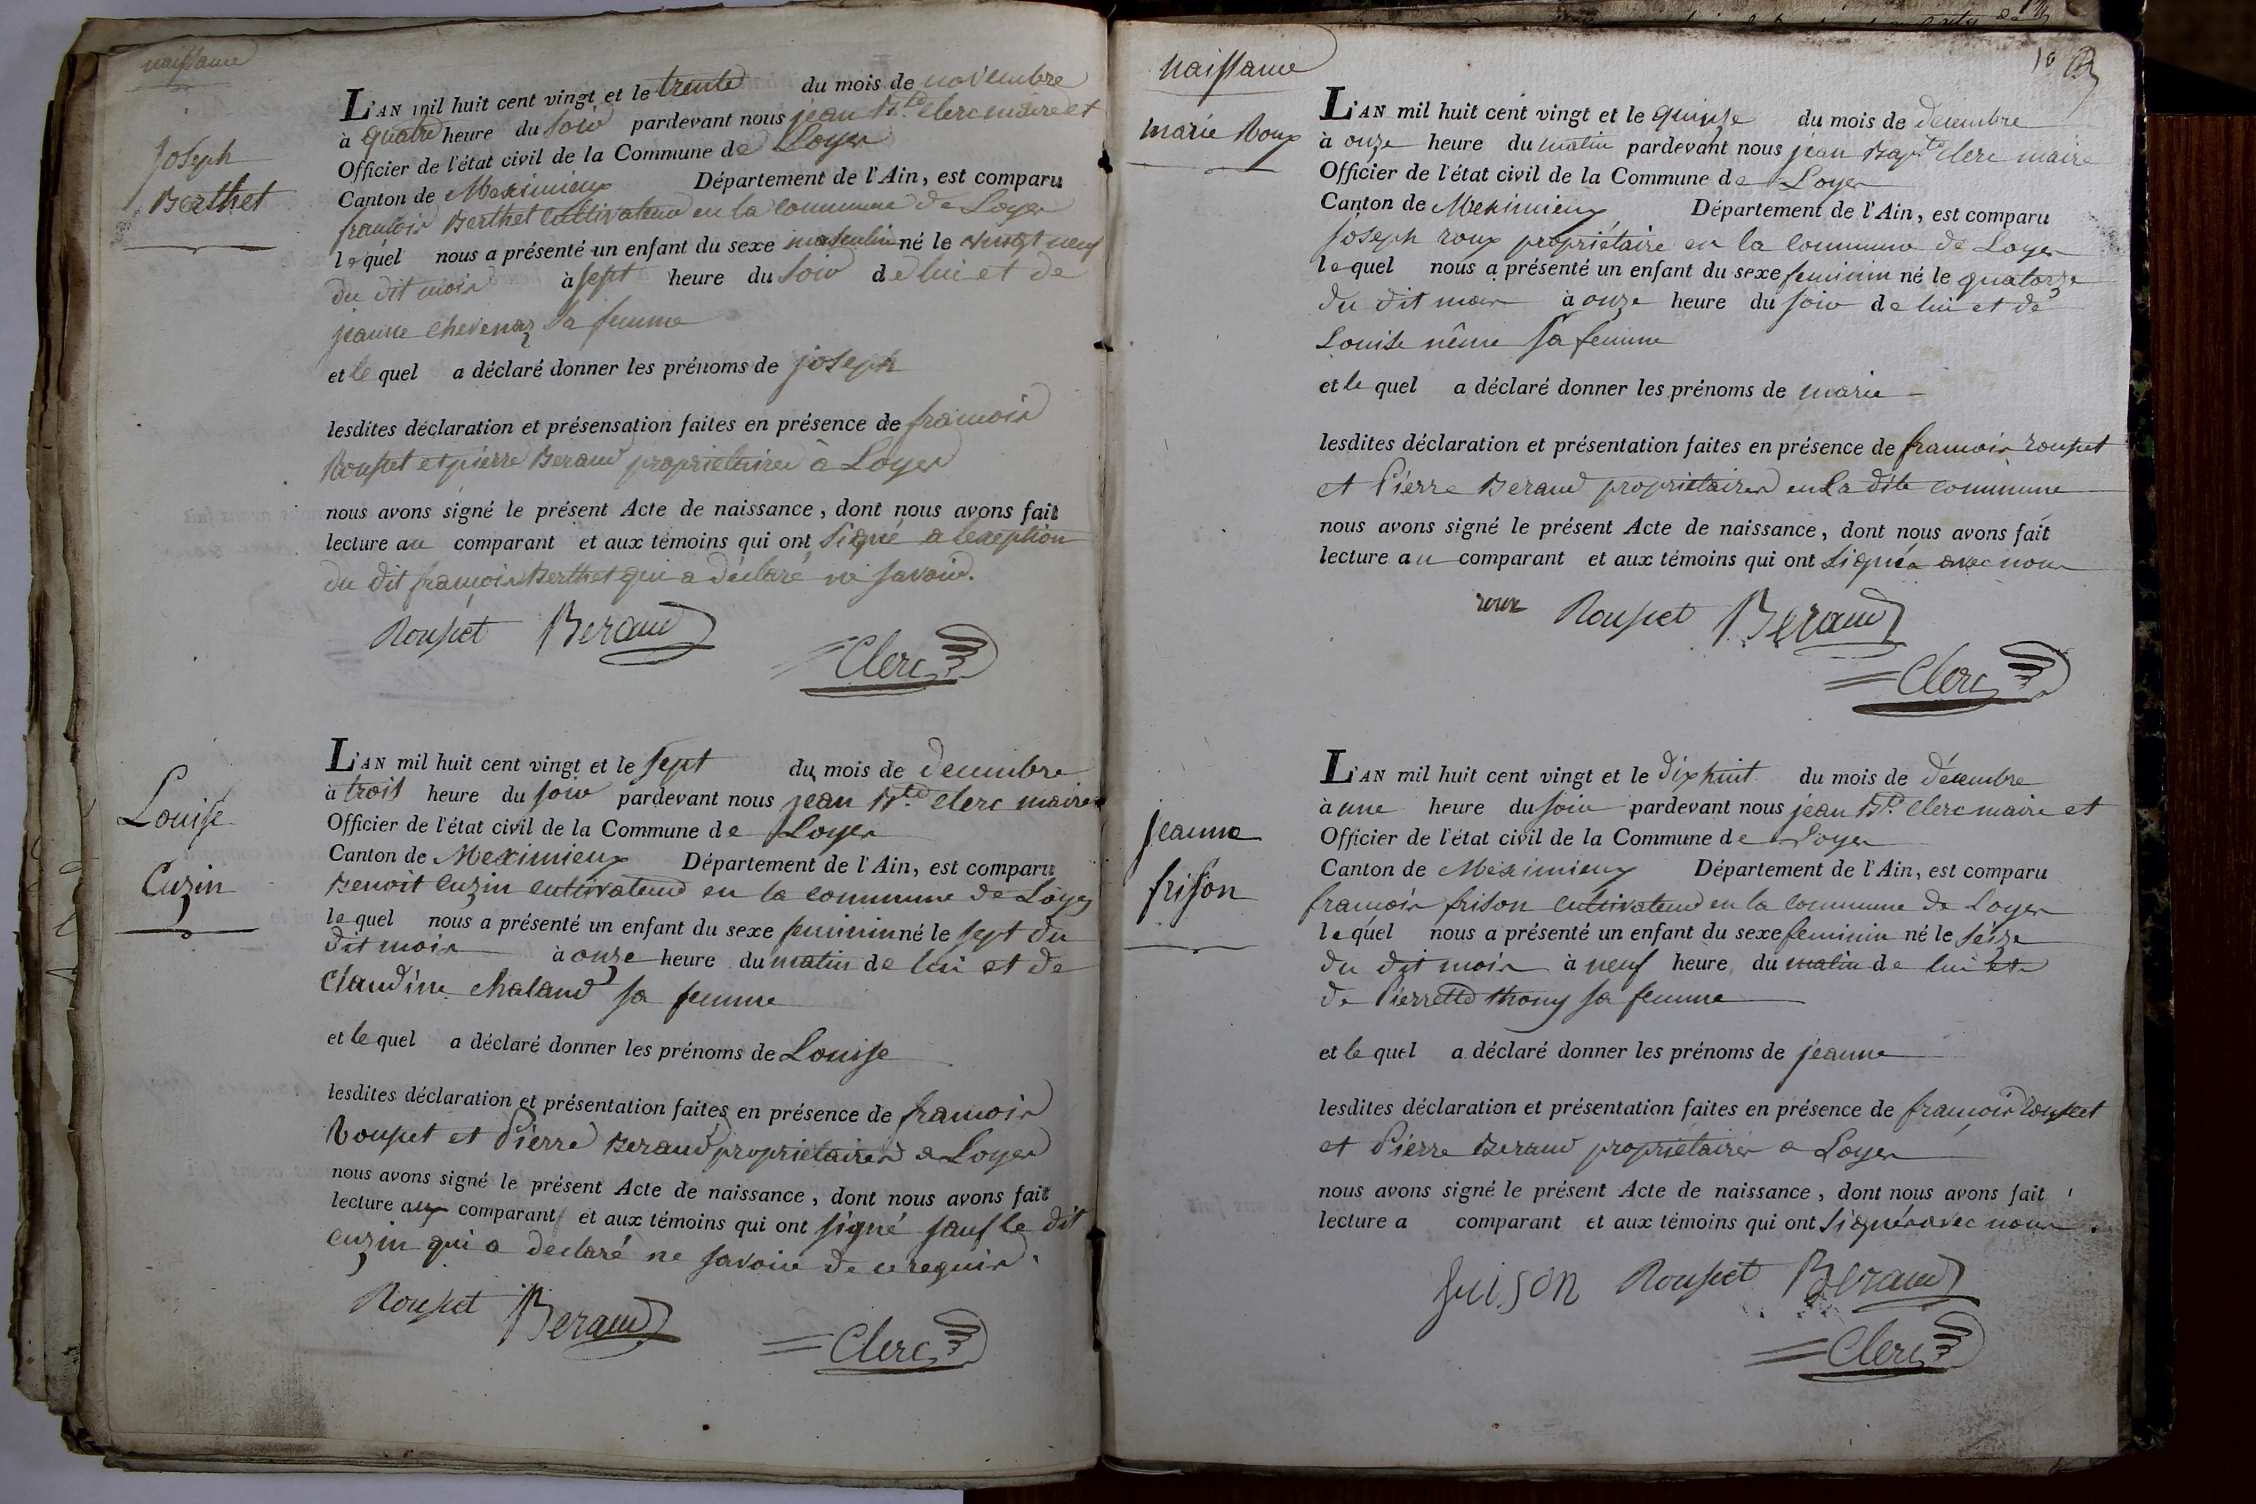 naissance
Joseph
Berthet
L'AN mil huit cent vingt et le trente du mois de novembre
à quatre heure du soir pardevant nous jean Bte. Clerc maire et
Officier de l'état civil de la Commune de Loyes
Canton de Meximieux Département de l'Ain, est comparu
francois Berthet Cultivateur en la commune de Loyes
lequel nous a présenté un enfant du sexe masculin né le vingt neuf
du dit mois à sept heure du soir de lui et de
jeanne Chevenaz sa femme
et le quel a déclaré donner les prénoms de joseph
lesdites déclaration et présensation faites en présence de francois
Rousset et pierre Beraud propriétaires à Loyes
nous avons signé le présent Acte de naissance, dont nous avons fait
lecture au comparant et aux témoins qui ont signé a lexeption
du dit françois Berthet qui a déclaré ne savoir.
Rousset Beraud
Clerc
Louise
Cuzin
L'AN mil huit cent vingt et le sept du mois de decembre
à trois heure du soir pardevant nous jean Bte Clerc maire
Officier de l'état civil de la Commune de Loyes
Canton de Meximieux Département de l'Ain, est comparu
Benoit Cuzin cultivateur en la commune de Loyes
le quel nous a présenté un enfant du sexe feminin né le sept du
dit mois à onze heure du matin de lui et de
Claudine Chaland sa femme
et le quel a déclaré donner les prénoms de Louise
lesdites déclaration et présentation faites en présence de francois
Rousset et Pierre Beraud propriétaires a Loyes
nous avons signé le présent Acte de naissance, dont nous avons fait
lecture aux comparant et aux témoins qui ont signé sauf le dit
cuzin qui a declaré ne savoir de ce requis.
Rousset Beraud
Clerc
naissance
18
marie Roux
L'AN mil huit cent vingt et le quinze du mois de decembre
à onze heure du matin pardevant nous jean Bapte Clerc maire
Officier de l'état civil de la Commune de Loyes
Canton de Meximieux Département de l'Ain, est comparu
Joseph roux propriétaire en la commune de Loyes
lequel nous a présenté un enfant du sexe feminin né le quatorze
du dit mois à onze heure du soir de lui et de
Louise nême sa femme
et le quel a déclaré donner les prénoms de marie
lesdites déclaration et présentation faites en présence de francois rousset
et Pierre Beraud propriétaires en la dite commune
nous avons signé le présent Acte de naissance, dont nous avons fait
lecture au comparant et aux témoins qui ont signés avec nous
roux Rousset Beraud
Clerc
jeanne
frison
L'AN mil huit cent vingt et le dix huit du mois de décembre
à une heure du soir pardevant nous jean Bte. Clerc maire et
Officier de l'état civil de la Commune de Loyes
Canton de Meximieux Département de l'Ain, est comparu
francois frison cultivateur en la commune de Loyes
lequel nous a présenté un enfant du sexe feminin né le seize
du dit mois à neuf heure du matin de lui et
de Pierrette thony sa femme
et le quel a déclaré donner les prénoms de jeanne
lesdites déclaration et présentation faites en présence de françois rousset
et Pierre Beraud propriétaires a Loyes
nous avons signé le présent Acte de naissance, dont nous avons fait
lecture a comparant et aux témoins qui ont signés avec nous.
Rousset Beraud
Clerc